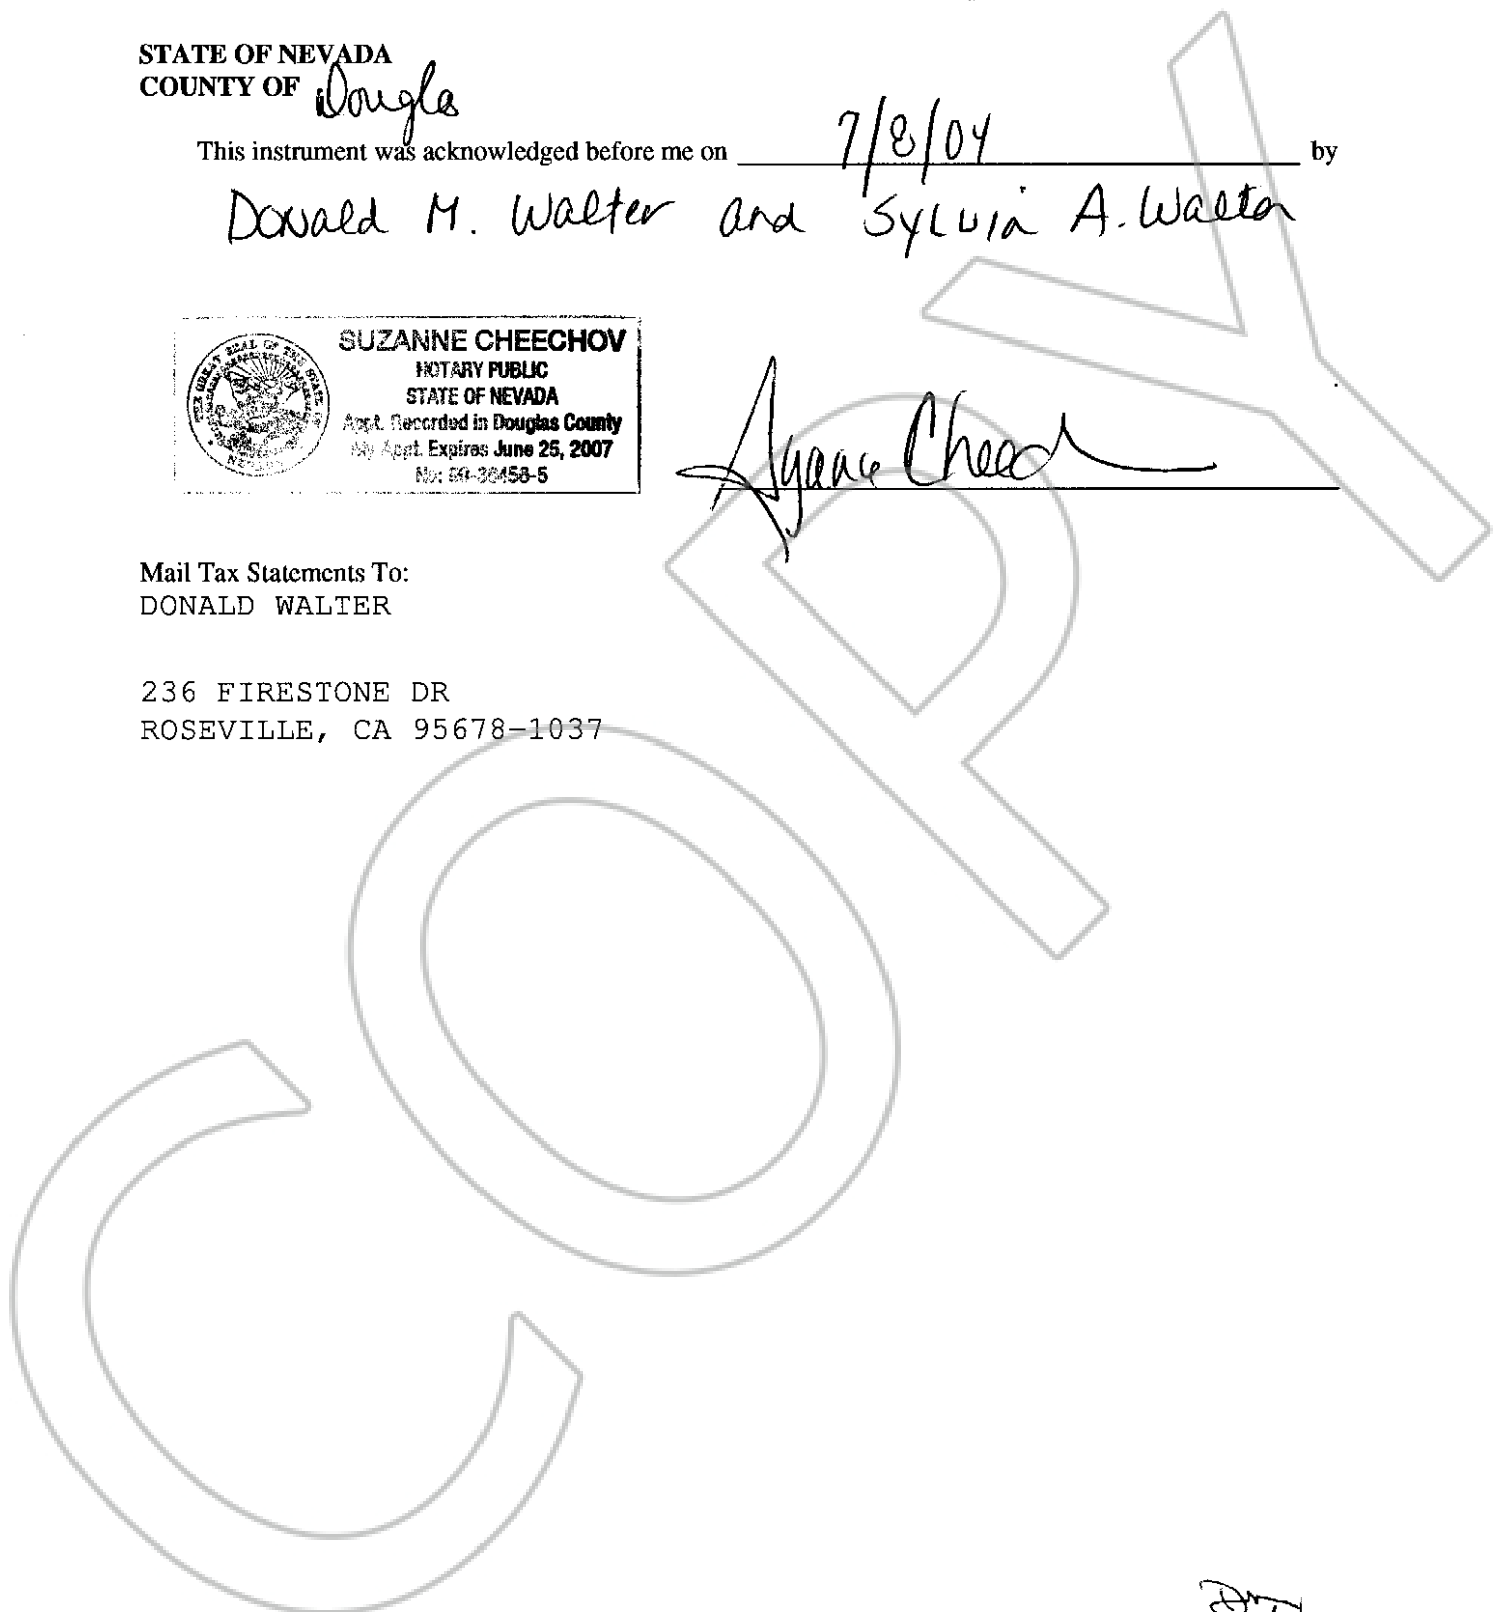 STATE OF NEVADA
COUNTY OF Douglas
This instrument was acknowledged before me on 7/8/04 by
Donald M. Walter and Sylvia A. Walter
SUZANNE CHEECHOV
NOTARY PUBLIC
STATE OF NEVADA
Appt. Recorded in Douglas County
My Appt. Expires June 25, 2007
No: 99-36458-5
Mail Tax Statements To:
DONALD WALTER
236 FIRESTONE DR
ROSEVILLE, CA 95678-1037
COPY